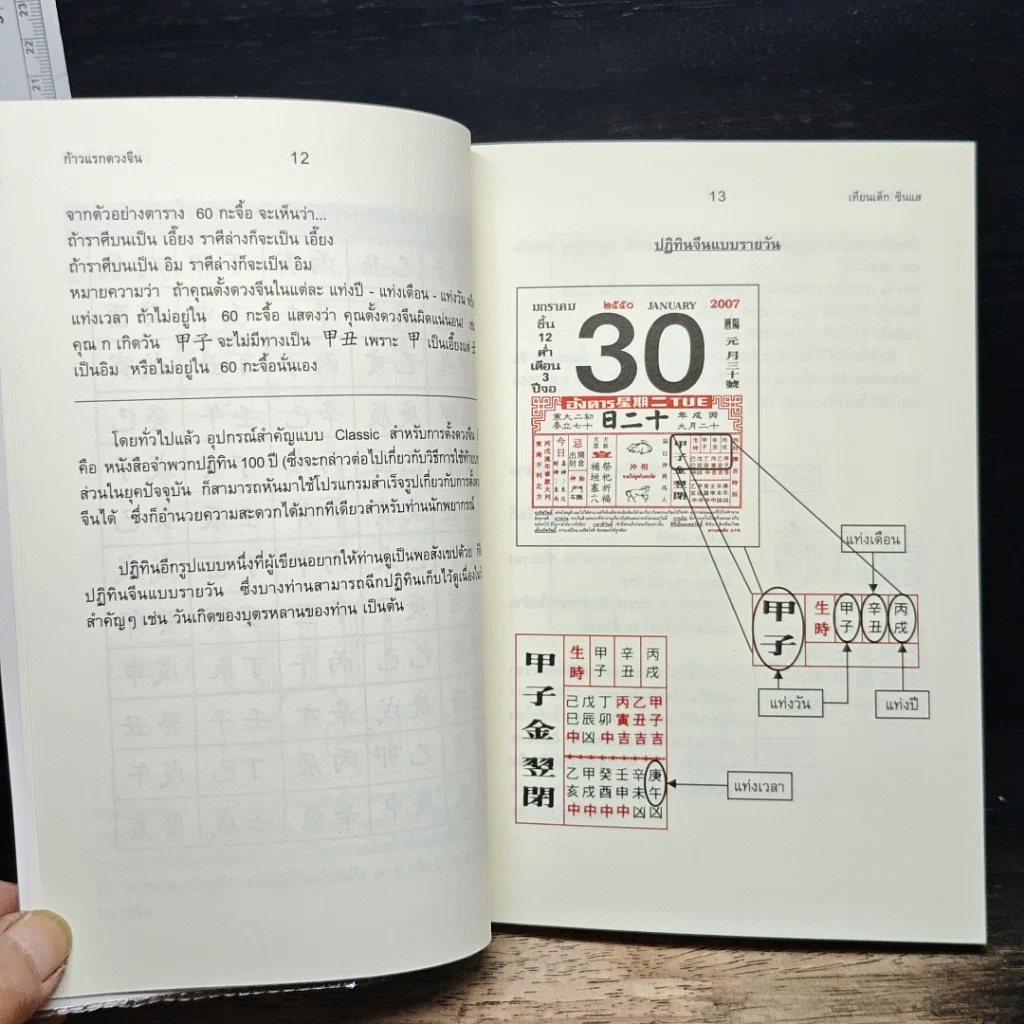 ก้าวแรกดวงจีน
12
จากตัวอย่างตาราง 60 กะจื้อ จะเห็นว่า...
ถ้าราศีบนเป็น เอี๊ยง ราศีล่างก็จะเป็น เอี๊ยง
ถ้าราศีบนเป็น อิม ราศีล่างก็จะเป็น อิม
หมายความว่า ถ้าคุณตั้งดวงจีนในแต่ละ แท่งปี - แท่งเดือน - แท่งวัน
แท่งเวลา ถ้าไม่อยู่ใน 60 กะจื้อ แสดงว่า คุณตั้งดวงจีนผิดแน่นอน!
คุณ ก เกิดวัน 甲子 จะไม่มีทางเป็น 甲丑 เพราะ 甲 เป็นเอี๊ยงแต่
เป็นอิม หรือไม่อยู่ใน 60 กะจื้อนั่นเอง
โดยทั่วไปแล้ว อุปกรณ์สำคัญแบบ Classic สำหรับการตั้งดวงจีน
คือ หนังสือจำพวกปฏิทิน 100 ปี (ซึ่งจะกล่าวต่อไปเกี่ยวกับวิธีการใช้
ส่วนในยุคปัจจุบัน ก็สามารถหันมาใช้โปรแกรมสำเร็จรูปเกี่ยวกับการตั้ง
จีนได้ ซึ่งก็อำนวยความสะดวกได้มากทีเดียวสำหรับท่านนักพยากรณ์
ปฏิทินอีกรูปแบบหนึ่งที่ผู้เขียนอยากให้ท่านดูเป็นพอสังเขปด้วย
ปฏิทินจีนแบบรายวัน ซึ่งบางท่านสามารถฉีกปฏิทินเก็บไว้ดูเนื่องใน
สำคัญๆ เช่น วันเกิดของบุตรหลานของท่าน เป็นต้น
13
เทียนเต็ก ซินแส
ปฏิทินจีนแบบรายวัน
มกราคม ๒๕๕๐ JANUARY 2007
ขึ้น
12
ค่ำ
เดือน
3
ปีจอ
30
元月三十號
อังคาร 星期二 TUE
寒大二初
春立七十
日二十
年戌丙
大月二十
今日
忌
沖相
甲子金翌閉
แท่งเดือน
甲子
生時
甲子
辛丑
丙戌
แท่งวัน
แท่งปี
甲子金翌閉
生時 甲子 辛丑 丙戌
己戊丁丙乙甲
巳辰卯寅丑子
中凶中吉吉吉
乙甲癸壬辛庚
亥戌酉申未午
中中中中凶凶
แท่งเวลา